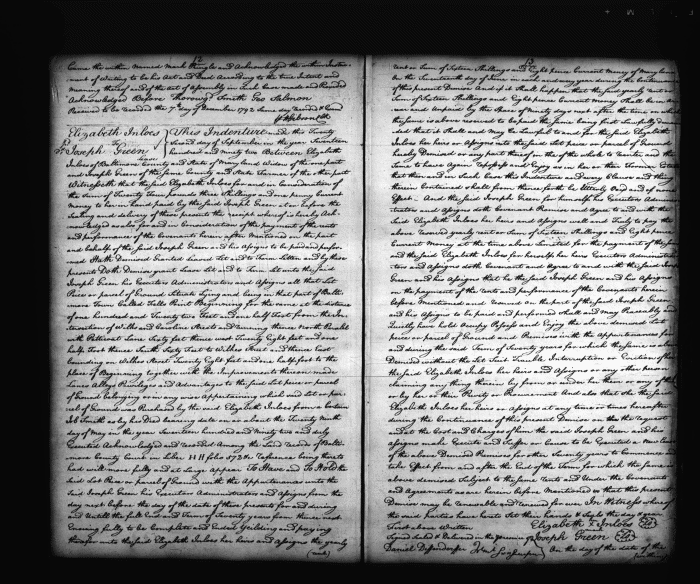 12
Came the within named Mark Pringle and Acknowledged the within Instru-
ment of Writing to be his Act and Deed According to the true Intent and
Meaning thereof and of the Act of Assembly in such Case made and Provided
Acknowledged Before Thorowgd Smith Geo Salmon
Received to be recorded the 7th day of December 1792 same day recorded & Exad
Wm Gibson Clk
Elizabeth Inloes This Indenture made this Twenty
To Joseph Green Lease second day of September in the year Seventeen
hundred and ninety two Between Elizabeth
Inloes of Baltimore County and State of Maryland Widow of the one part
and Joseph Green of the same County and State Farmer of the other part
Witnesseth that the said Elizabeth Inloes for and in Consideration of
the sum of Twenty Three pounds three Shillings and one penny Current
Money to her in hand paid by the said Joseph Green at or before the
sealing and delivery of these presents the receipt whereof is hereby Ack-
nowledged as also for and in Consideration of the payment of the rents
and performance of the Covenants herein after Mentioned on the part
and behalf of the said Joseph Green and his Assigns to be paid and perfor-
med Hath Demised Granted Leased Set and to Farm Letten and by these
presents Doth Demise grant Lease Set and to Farm let unto the said
Joseph Green his Executors Administrators and Assigns all that Lot
Piece or parcel of Ground situate lying and being in that part of Balti-
more Town Called Fells Point Beginning for the same at the distance
of one hundred and Twenty two feet and one half foot from the In-
tersection of Wilks and Caroline Streets and running thence North Parallel
with Petticoat Lane Sixty feet thence west Twenty Eight feet and one
half foot thence South Sixty feet to Wilkes Street and thence East
bounding on Wilkes Street Twenty Eight feet and one half foot to the
place of Beginning together with the Improvements thereon made
Lanes Alleys Priviliges and Advantages to the said Lot piece or parcel
of Ground belonging or in any wise Appertaining which said Lot or par-
cel of Ground was Purchased by the said Elizabeth Inloes from a Certain
Job Smith as by his Deed bearing date on or about the Twenty Ninth
day of May in the year Seventeen hundred and Ninety two and duly
Executed Acknowledged and recorded Among the Land records of Balti-
more County Court in Liber HH folio 473 &c Reference being thereto
had will more fully and at Large Appear To Have and To Hold the
said Lot Piece or parcel of Ground with the Appurtenances unto the
said Joseph Green his Executors Administrators and Assigns from the
day next before the day of the date of these present for and during
and Untill the full End and Term of Seventy years from thence next
Ensuing fully to be Complete and Ended Yielding and paying
therefor unto the said Elizabeth Inloes her heirs and Assigns the yearly
(rent)
13
rent or Sum of Sixteen Shillings and Eight pence Current Money of Maryland
On the Seventeenth day of June in each and every year during the Continuance
of this present Demise And if it shall happen that the said yearly rent or
Sum of Sixteen Shillings and Eight pence Current Money Shall be in
rear and unpaid by the space of Ninety days next after the time on which
the same is above reserved to be paid the same being first Lawfully deman-
ded that it shall and May be Lawful to and for the said Elizabeth
Inloes her heirs or Assigns into the said Lot piece or parcel of Ground
hereby Demised or any part thereof in the name of the whole to reenter and the
Same to have again Repossess and Enjoy as in her or their former Estate
that then and in such Case this Indenture and every Clause and thing
therein Contained shall from thence forth be Utterly Void and of none
Effect And the said Joseph Green for himself his Executors Adminis-
trators and Assigns doth Covenant Promise and Agree to and with the
said Elizabeth Inloes her heirs and Assigns well and Truly to pay the
above reserved yearly rent or Sum of Sixteen Shillings and Eight pence
Current Money at the time above Limited for the payment thereof
and the said Elizabeth Inloes for herself her heirs Executors Administra-
tors and Assigns doth Covenant and Agree to and with the said Joseph
Green and his Assigns that he the said Joseph Green and his Assigns
on the payment of the rents and performance of the Covenants herein
before Mentioned and Contained on the part of the said Joseph Green
and his Assigns to be paid and performed shall and May Peaceably and
Quietly have hold Occupy Possess and Enjoy the above demised Lot
piece or parcel of Ground and Premises with the Appurtenances for
and during the said Term of Seventy years for which the same is above
Demised without the Let Suit Trouble Interruption or Eviction of her
the said Elizabeth Inloes her heirs and Assigns or any other person
claiming any thing therein by from or under her them or any of them
or by her or their Privity or Procurement And also that she the said
Elizabeth Inloes her heirs or Assigns at any time or times hereafter
during the Continuance of this present Demise at the request
and at the Cost and Charges of him the said Joseph Green and his
Assigns make Execute and Suffer or Cause to be Executed a New Lease
of the above Demised Premises for other Seventy years to Commence and
take Effect from and after the End of the Term for which the same are
above demised Subject to the same rents and Under the Covenants
and Agreements as are herein before Mentioned so that this present
Demise may be renewable and renewed for ever In Witness whereof
the said Parties have hereto Set their hands & Seals the day & year
First above Written Elizabeth Inloes
Signed sealed & Delivered in the presence of Joseph Green
Daniel Diffenderffer On the day of the date of the